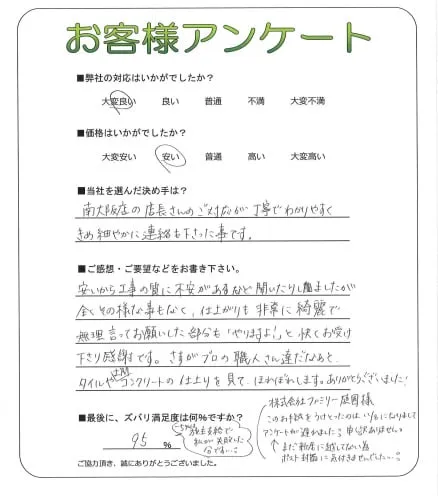 お客様アンケート
■弊社の対応はいかがでしたか？
大変良い 良い 普通 不満 大変不満
■価格はいかがでしたか？
大変安い 安い 普通 高い 大変高い
■当社を選んだ決め手は？
南大阪店の店長さんのご対応が丁寧でわかりやすく
きめ細やかに連絡も下さった事です。
■ご感想・ご要望などをお書き下さい。
安いから工事の質に不安があるなど聞いたりしましたが
全くその様な事もなく、仕上がりも非常に綺麗で
無理言ってお願いした部分も「やりますよ!」と快くお受け
下さり感謝です。さすがプロの職人さん達だなあと、
タイルや土間コンクリートの仕上りを見て、ほれぼれします。ありがとうございました!
■最後に、ズバリ満足度は何%ですか？
95 %
-5%は施主支給で私が失敗した分です…。
株式会社ファミリー庭園様
このお手紙をうけとったのは になりまして
アンケートが遅れました? 申し訳ありません。
まだ新居に越してない為
ポスト封筒に気付きませんでした…。
ご協力頂き、誠にありがとうございました。